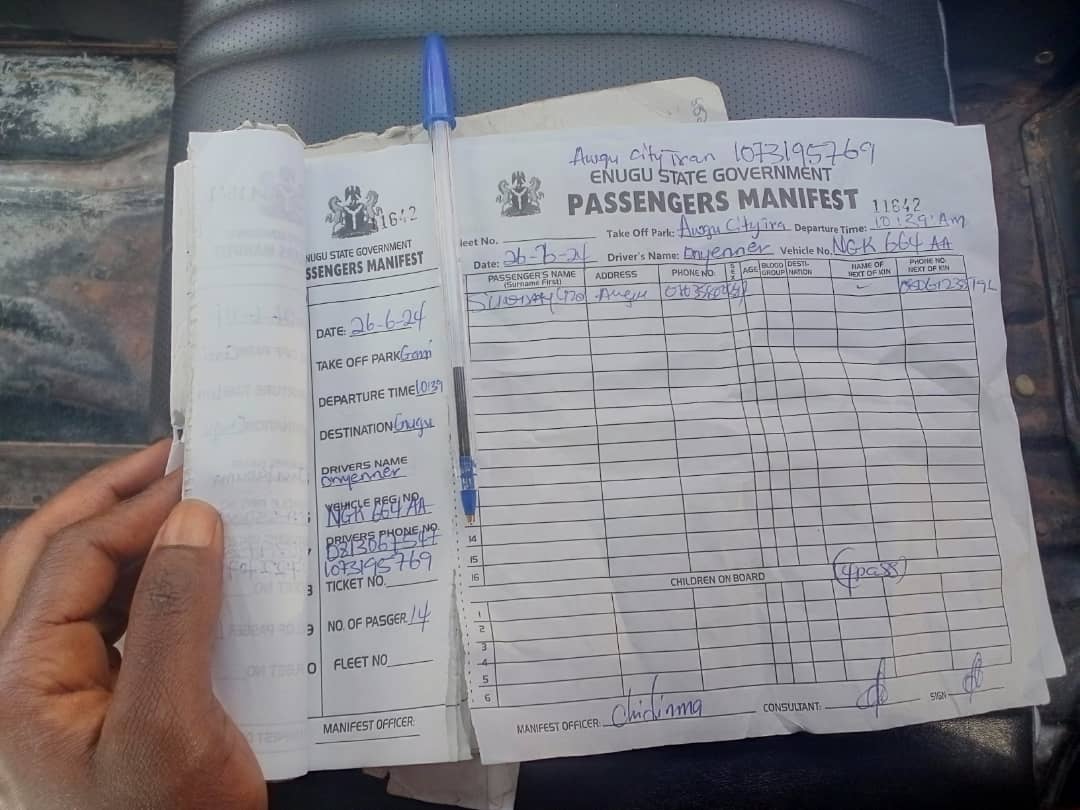 1642
NUGU STATE GOVERNMENT
SSENGERS MANIFEST
DATE: 26-6-24
TAKE OFF PARK
DEPARTURE TIME 10139
DESTINATION Enugu
DRIVERS NAME
onyenner
VEHICLE REG. NO.
NGK 664 AA
DRIVERS PHONE NO.
1073195769
TICKET NO.
NO. OF PASGER. 14
FLEET NO
MANIFEST OFFICER:
Awgu City Tran 1073195769
ENUGU STATE GOVERNMENT
PASSENGERS MANIFEST
11642
leet No. Take Off Park: Awgu City Tra Departure Time: 10:39 Am
Date: 26-6-24 Driver's Name: onyenner Vehicle No. NGK 664 AA
PASSENGER'S NAME (Surname First) ADDRESS PHONE NO. SEX AGE BLOOD GROUP DESTINATION NAME OF NEXT OF KIN PHONE NO. NEXT OF KIN
Sunday Awgu
14
15
16
CHILDREN ON BOARD 4pass
1
2
3
4
5
6
MANIFEST OFFICER: Chidinma CONSULTANT: SIGN